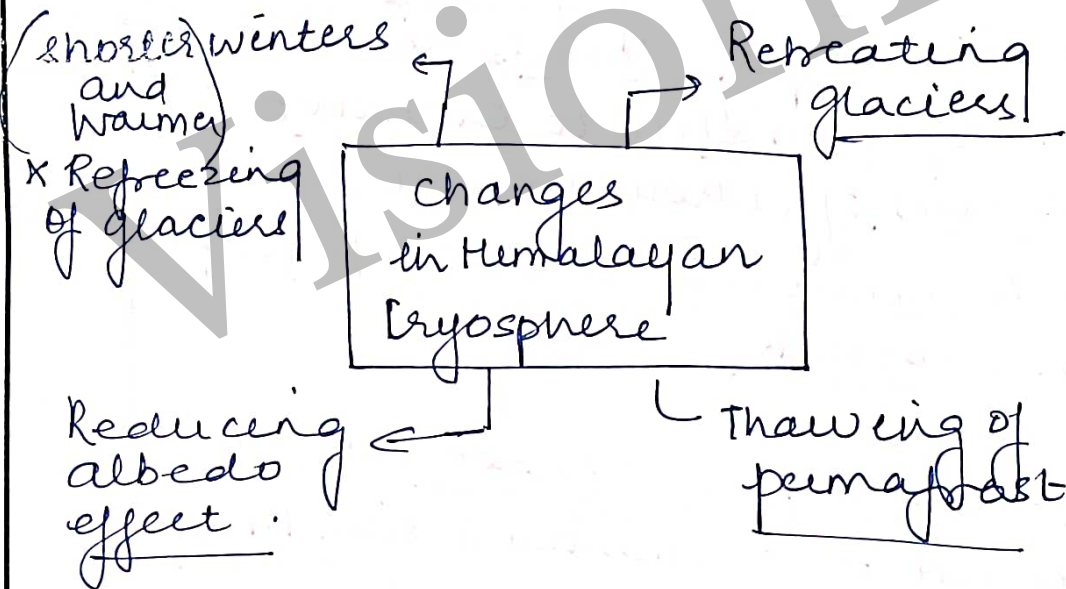 (shorter winters
and
warmer)
x Refreezing
of glaciers
Retreating
glaciers
changes
in Himalayan
Cryosphere
Reducing
albedo
effect.
Thawing of
permafrost
Vision